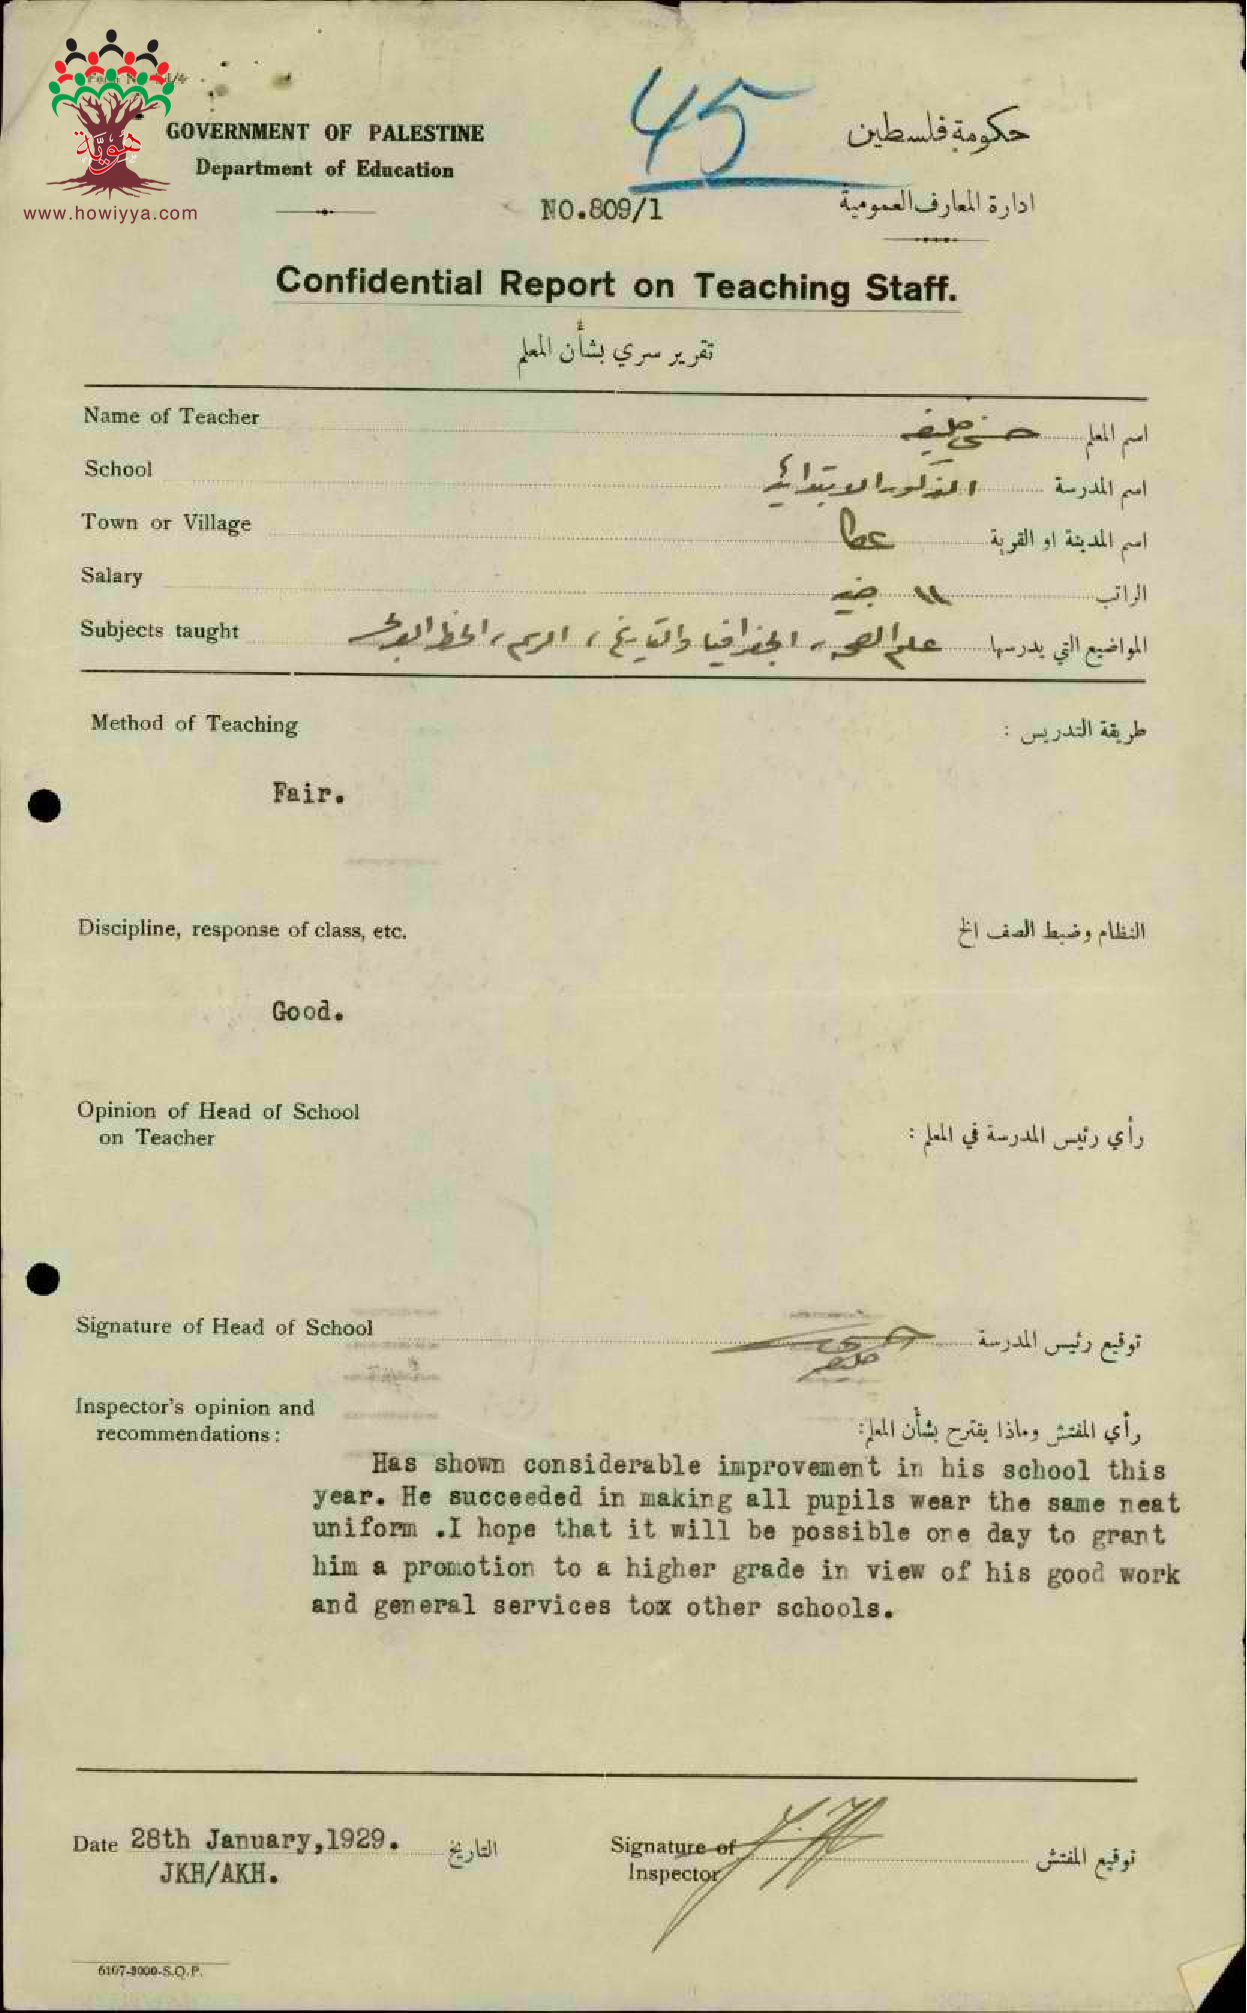 هويّة
www.howiyya.com
GOVERNMENT OF PALESTINE
Department of Education
45
حكومة فلسطين
ادارة المعارف العمومية
NO.809/1
Confidential Report on Teaching Staff.
تقرير سري بشأن المعلم
Name of Teacher حسني خليفه اسم المعلم
School الذكور الابتدائية اسم المدرسة
Town or Village عكا اسم المدينة او القرية
Salary ١١ جنيه الراتب
Subjects taught علم الصحة، الجغرافيا والتاريخ، الرسم، الخط المواضيع التي يدرسها
Method of Teaching طريقة التدريس :
Fair.
Discipline, response of class, etc. النظام وضبط الصف الخ
Good.
Opinion of Head of School
on Teacher رأي رئيس المدرسة في المعلم :
Signature of Head of School حسني خليفه توقيع رئيس المدرسة
Inspector's opinion and
recommendations : رأي المفتش وماذا يقترح بشأن المعلم:
Has shown considerable improvement in his school this
year. He succeeded in making all pupils wear the same neat
uniform .I hope that it will be possible one day to grant
him a promotion to a higher grade in view of his good work
and general services tox other schools.
Date 28th January,1929. التاريخ
JKH/AKH.
Signature of
Inspector توقيع المفتش
6107-3000-S.Q.P.